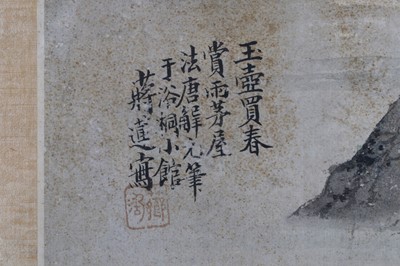 玉壺買春
賞雨茅屋
法唐解元筆
于浴桐小館
蔣蘧寫